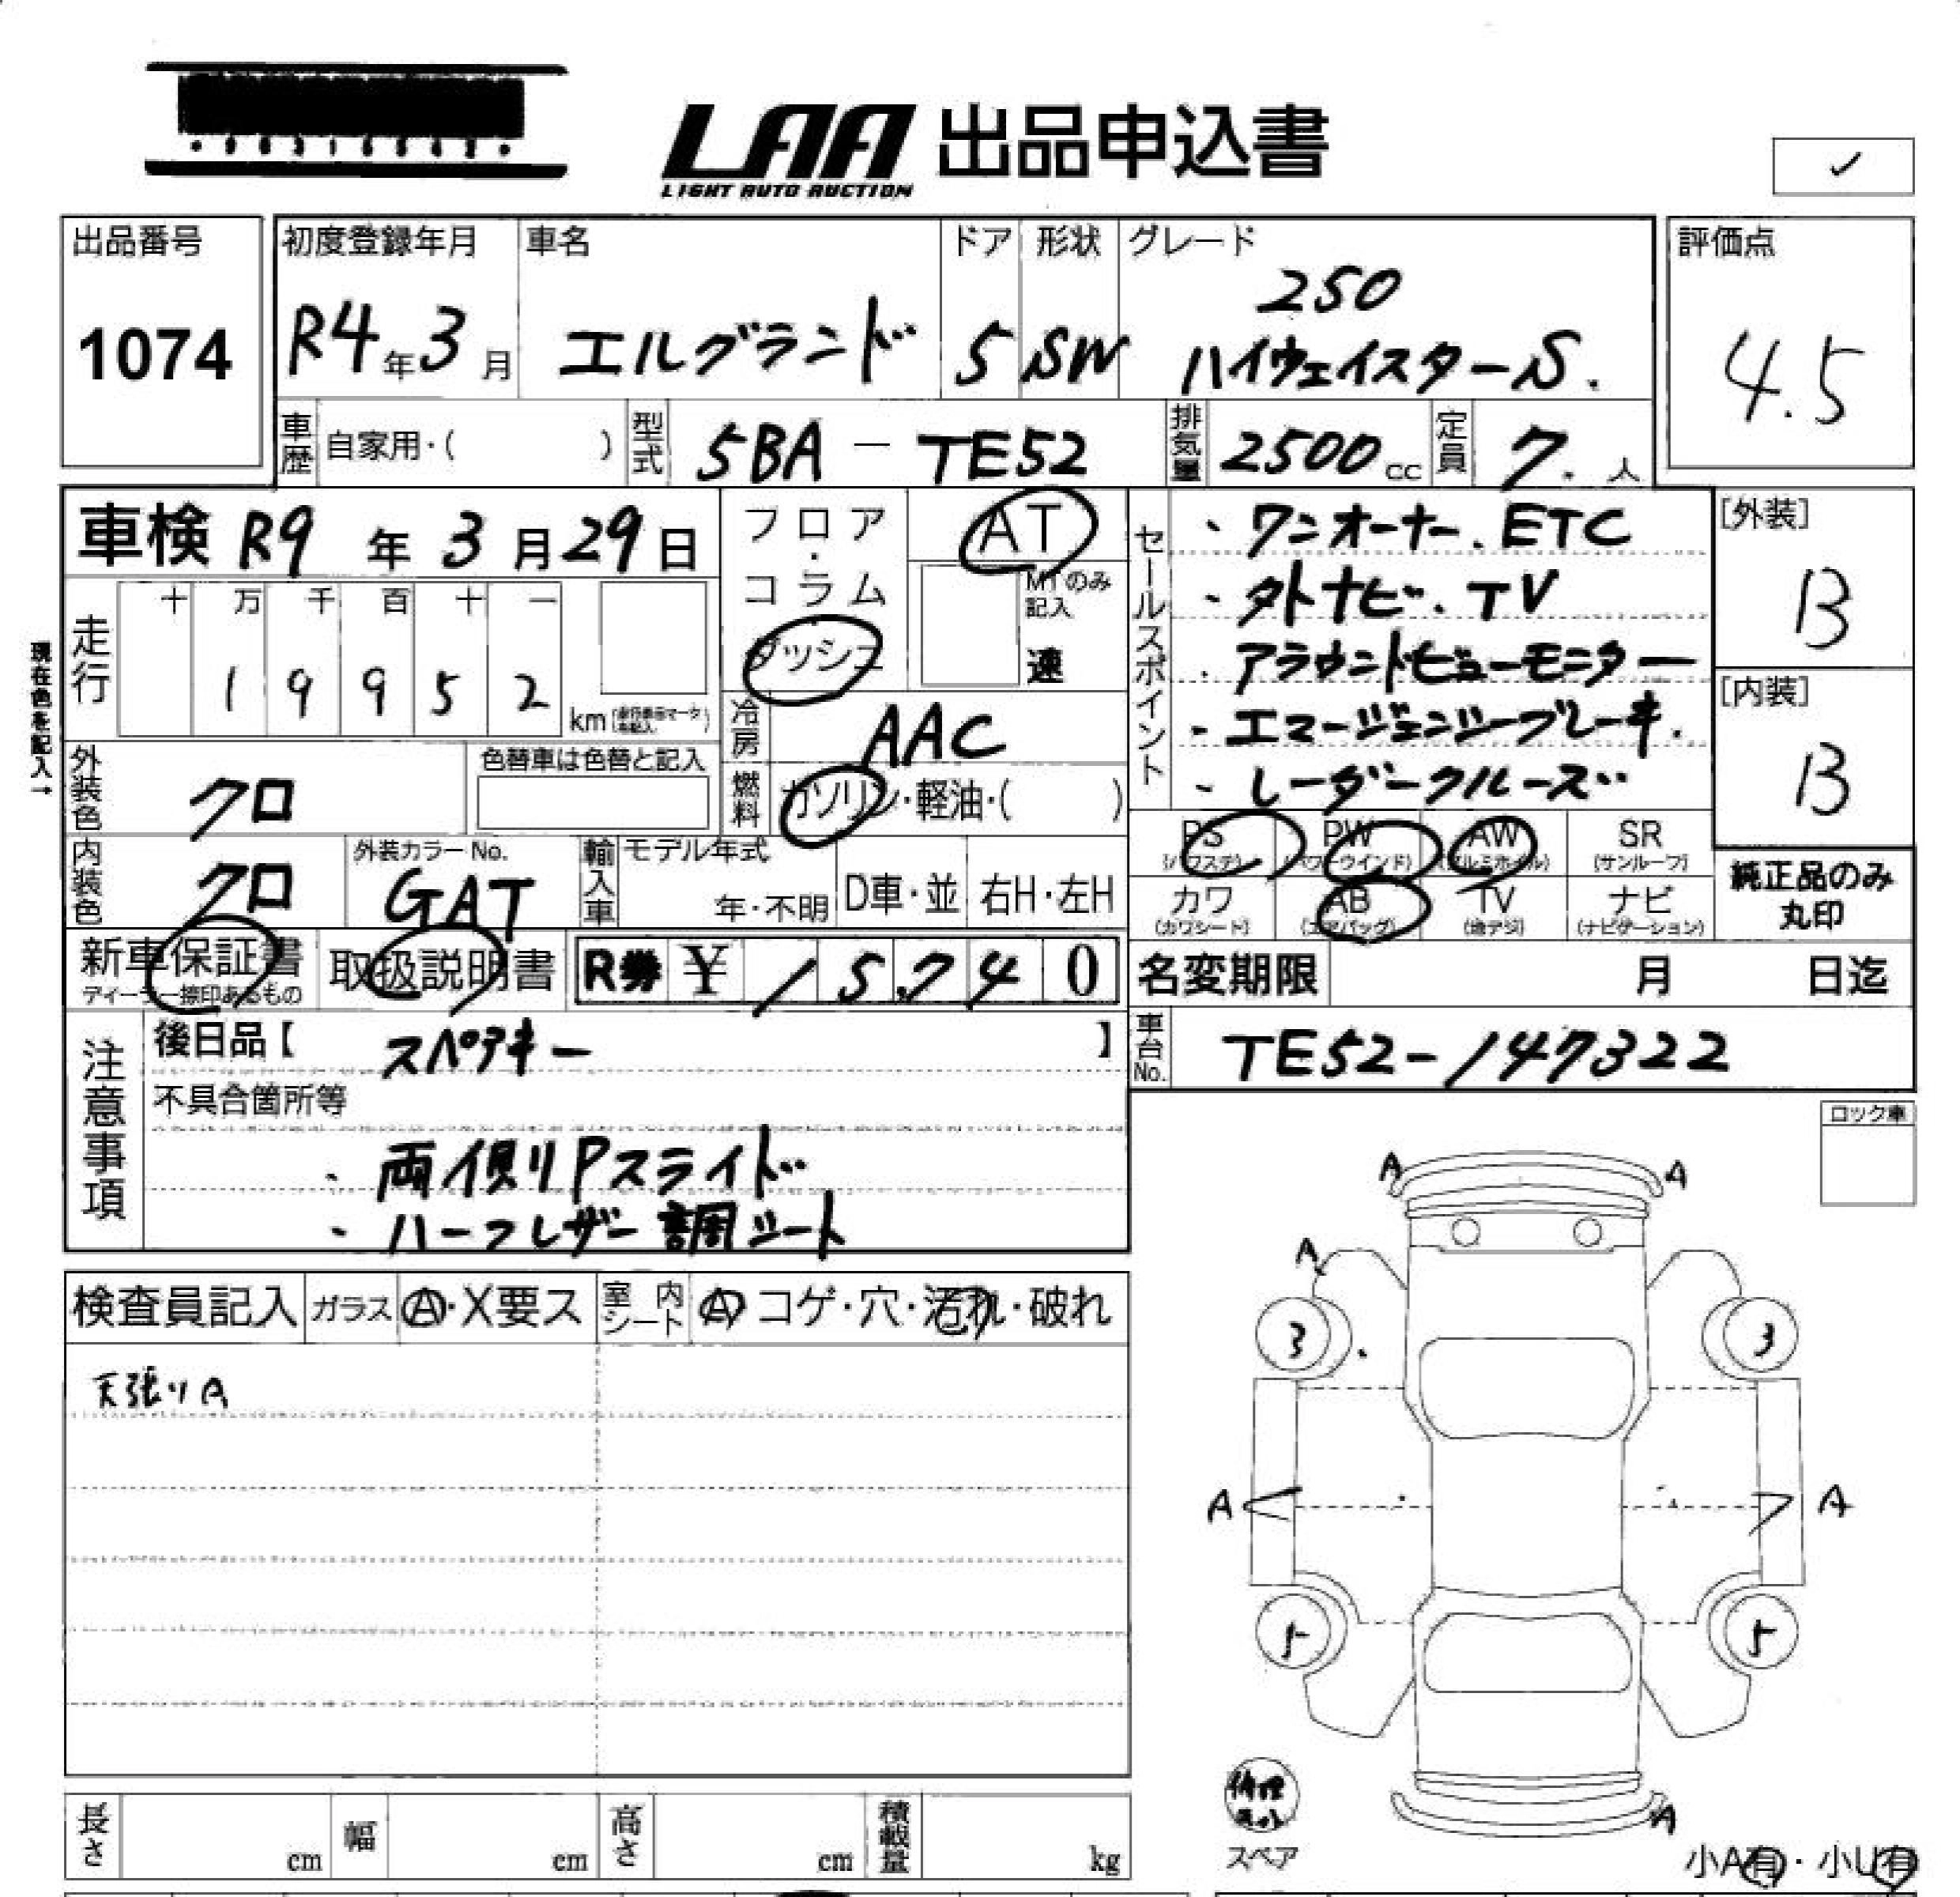 LAA 出品申込書
LIGHT AUTO AUCTION
出品番号
1074
初度登録年月
R4年3月
車名
エルグランド
ドア
5
形状
SW
グレード
250
ハイウェイスターS.
評価点
4.5
車歴 自家用・( )
型式 5BA - TE52
排気量 2500cc
定員 7.人
車検 R9年3月29日
フロア・コラム
ダッシュ
AT
MTのみ記入
速
現在色を記入→
走行
十 万 千 百 十 一
1 9 9 5 2
km
冷房 AAC
燃料 ガソリン・軽油・( )
外装色 クロ
色替車は色替と記入
内装色 クロ
外装カラーNo.
GAT
輸入車 モデル年式
年・不明
D車・並
右H・左H
セールスポイント
・ワンオーナー.ETC
・外ナビ.TV
・アラウンドビューモニター
・エマージェンシーブレーキ.
・レーダークルーズ
[外装]
B
[内装]
B
PS (パワステ)
PW (パワーウインド)
AW (アルミホイル)
SR (サンルーフ)
カワ (カワシート)
AB (エアバッグ)
TV (地デジ)
ナビ (ナビゲーション)
純正品のみ
丸印
新車保証書
ディーラー捺印あるもの
取扱説明書
R券 ¥ 15,740
名変期限 月 日迄
車台No. TE52-147322
注意事項
後日品【 スペアキー 】
不具合箇所等
・両側Pスライド
・ハーフレザー調シート
ロック車
検査員記入
ガラス A・X要ス
室内シート A コゲ・穴・汚れ・破れ
天張りA
A A
A
3 3
A A
5 5
A
スペア
小A有・小U有
長さ cm
幅 cm
高さ cm
積載量 kg